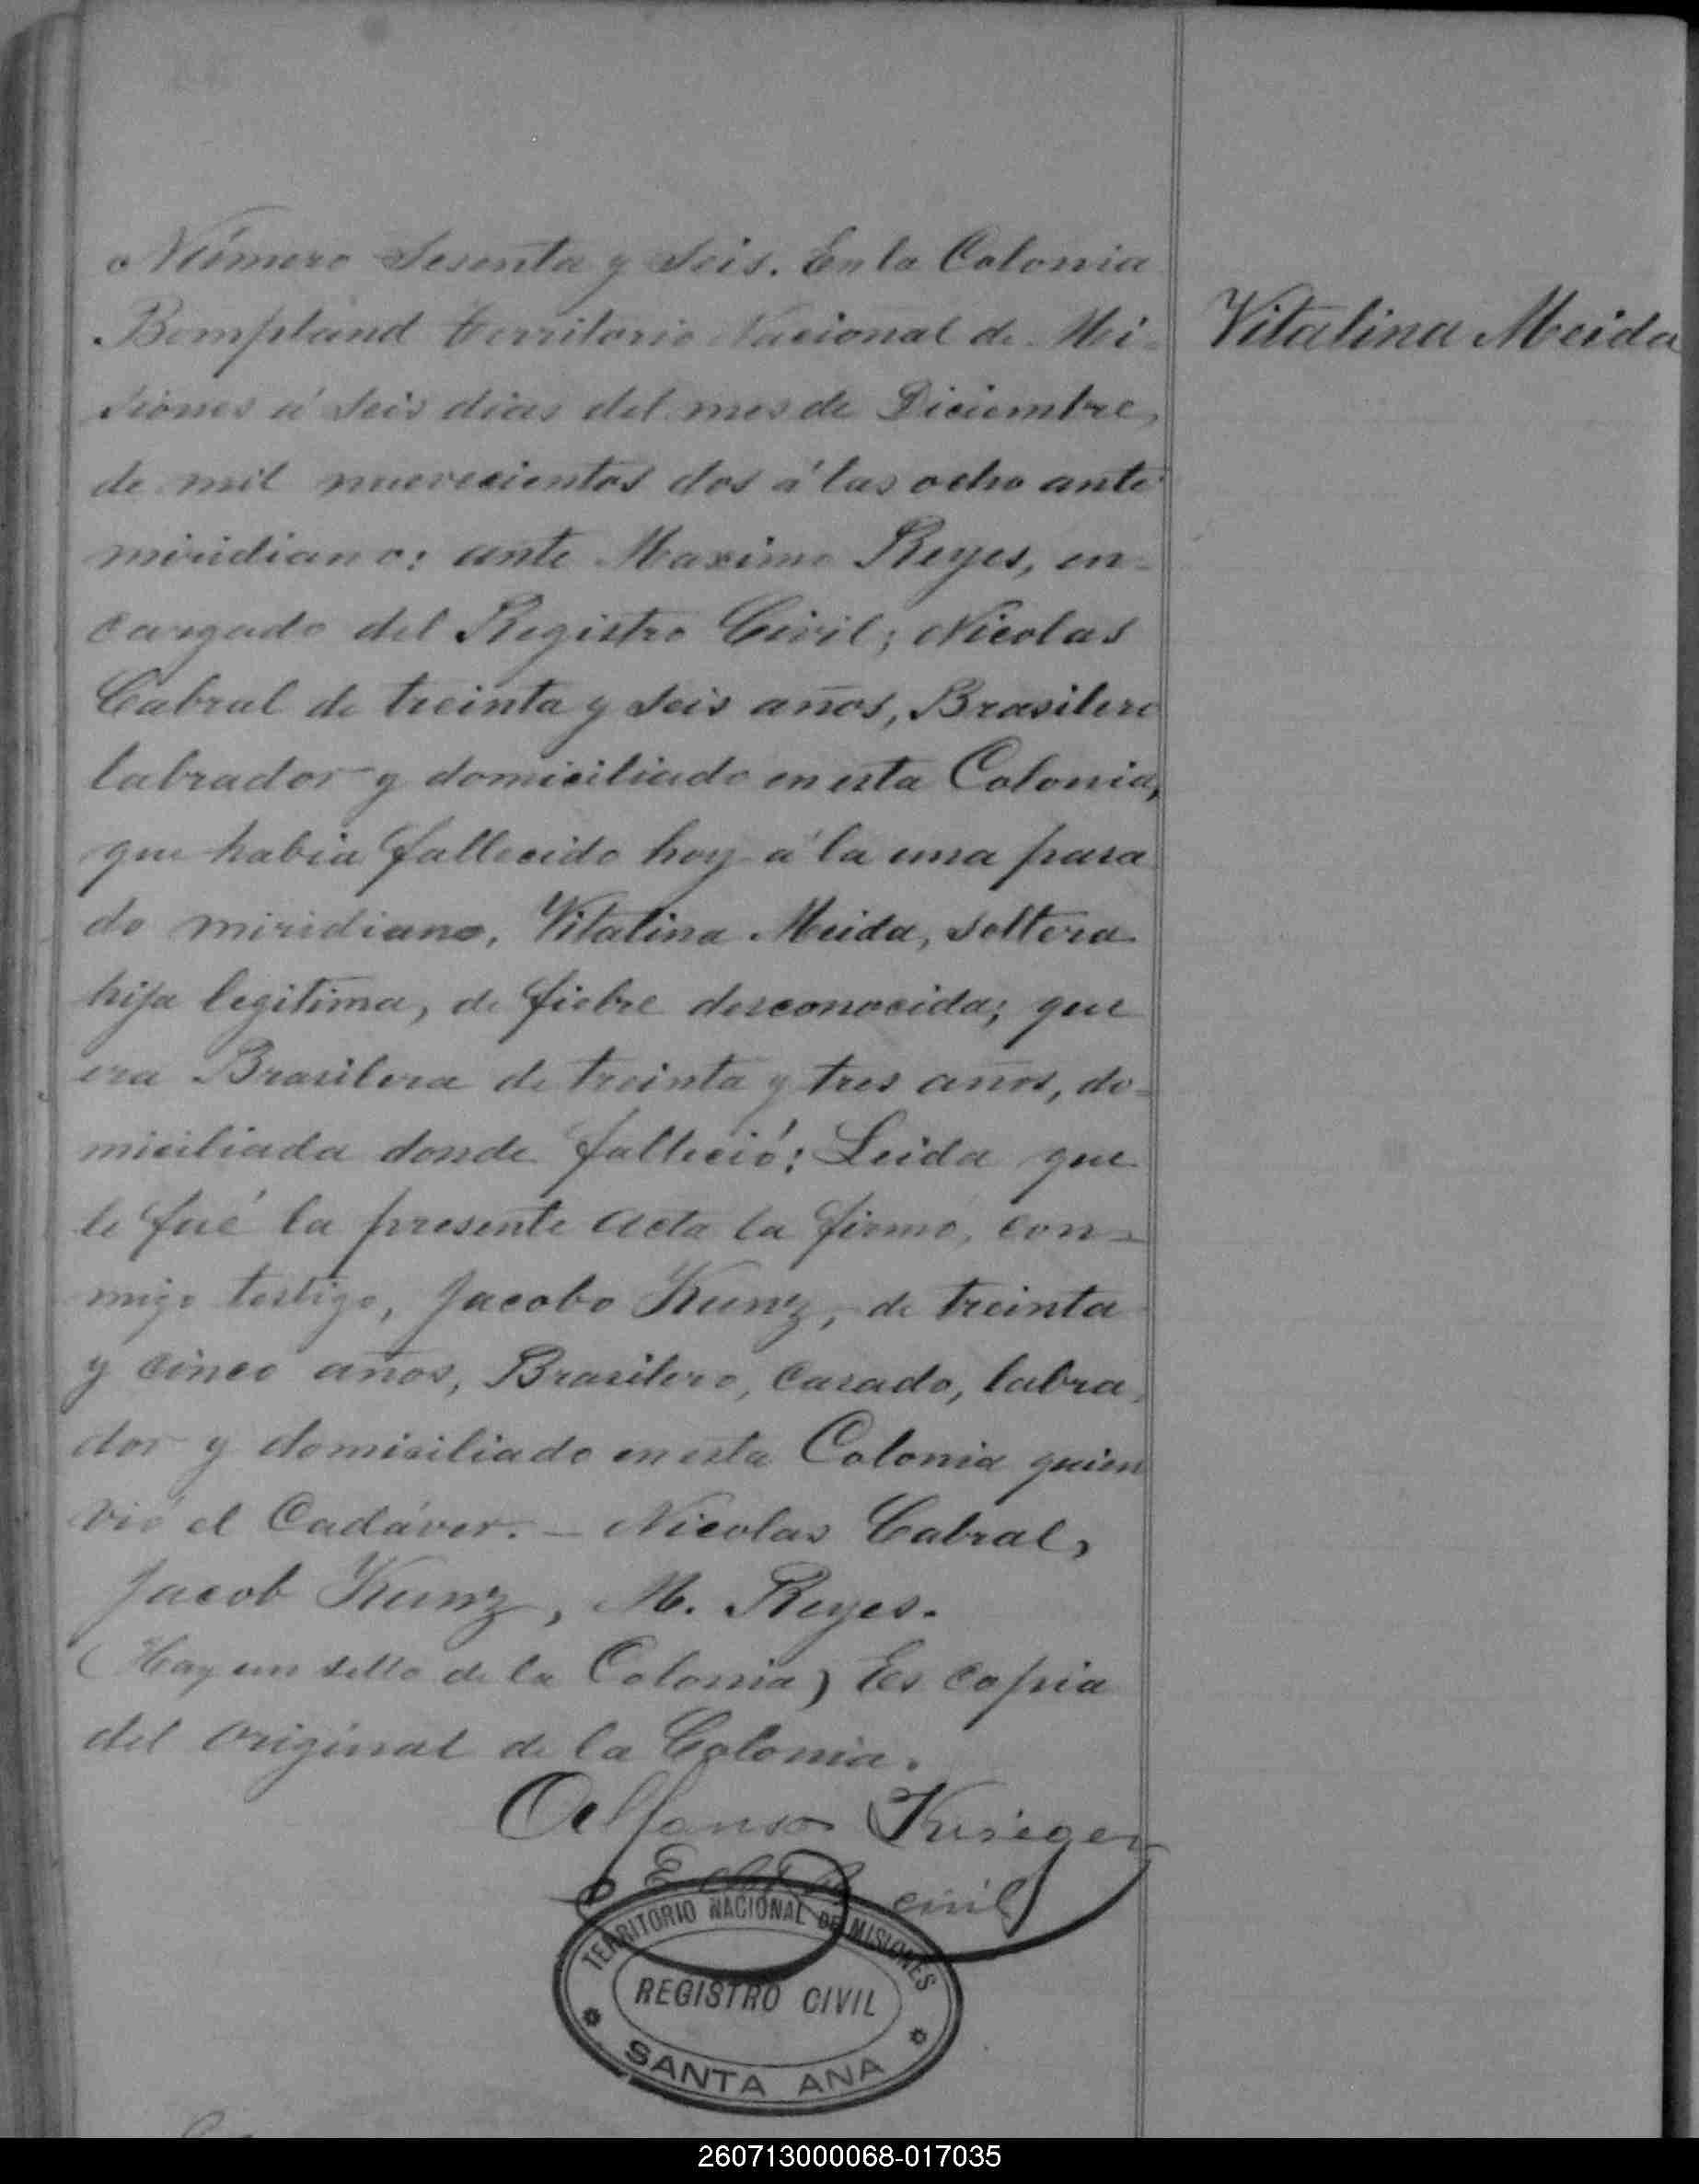 Número Sesenta y Seis. En la Colonia
Bompland territorio Nacional de Mi-
siones á Seis dias del mes de Diciembre,
de mil nuevecientos dos á las ocho ante
miridiano: ante Maximo Reyes, en-
cargado del Registro Civil; Nicolas
Cabral de treinta y seis años, Brasilero
labrador y domiciliado en esta Colonia,
que habia fallecido hoy á la una pasa
do miridiano, Vitalina Meida, soltera
hija legitima, de fiebre desconocida; que
era Brasilera de treinta y tres años, do-
miciliada donde falleció: Leida que
le fué la presente acta la firmó, con-
migo testigo, Jacobo Kunz, de treinta
y cinco años, Brasilero, casado, labra
dor y domiciliado en esta Colonia quien
vió el Cadáver. - Nicolas Cabral,
Jacob Kunz, M. Reyes.
(Hay un sello de la Colonia) Es copia
del original de la Colonia.
Alfonso Krieger
civil
TERRITORIO NACIONAL DE MISIONES
REGISTRO CIVIL
SANTA ANA
Vitalina Meida
260713000068-017035